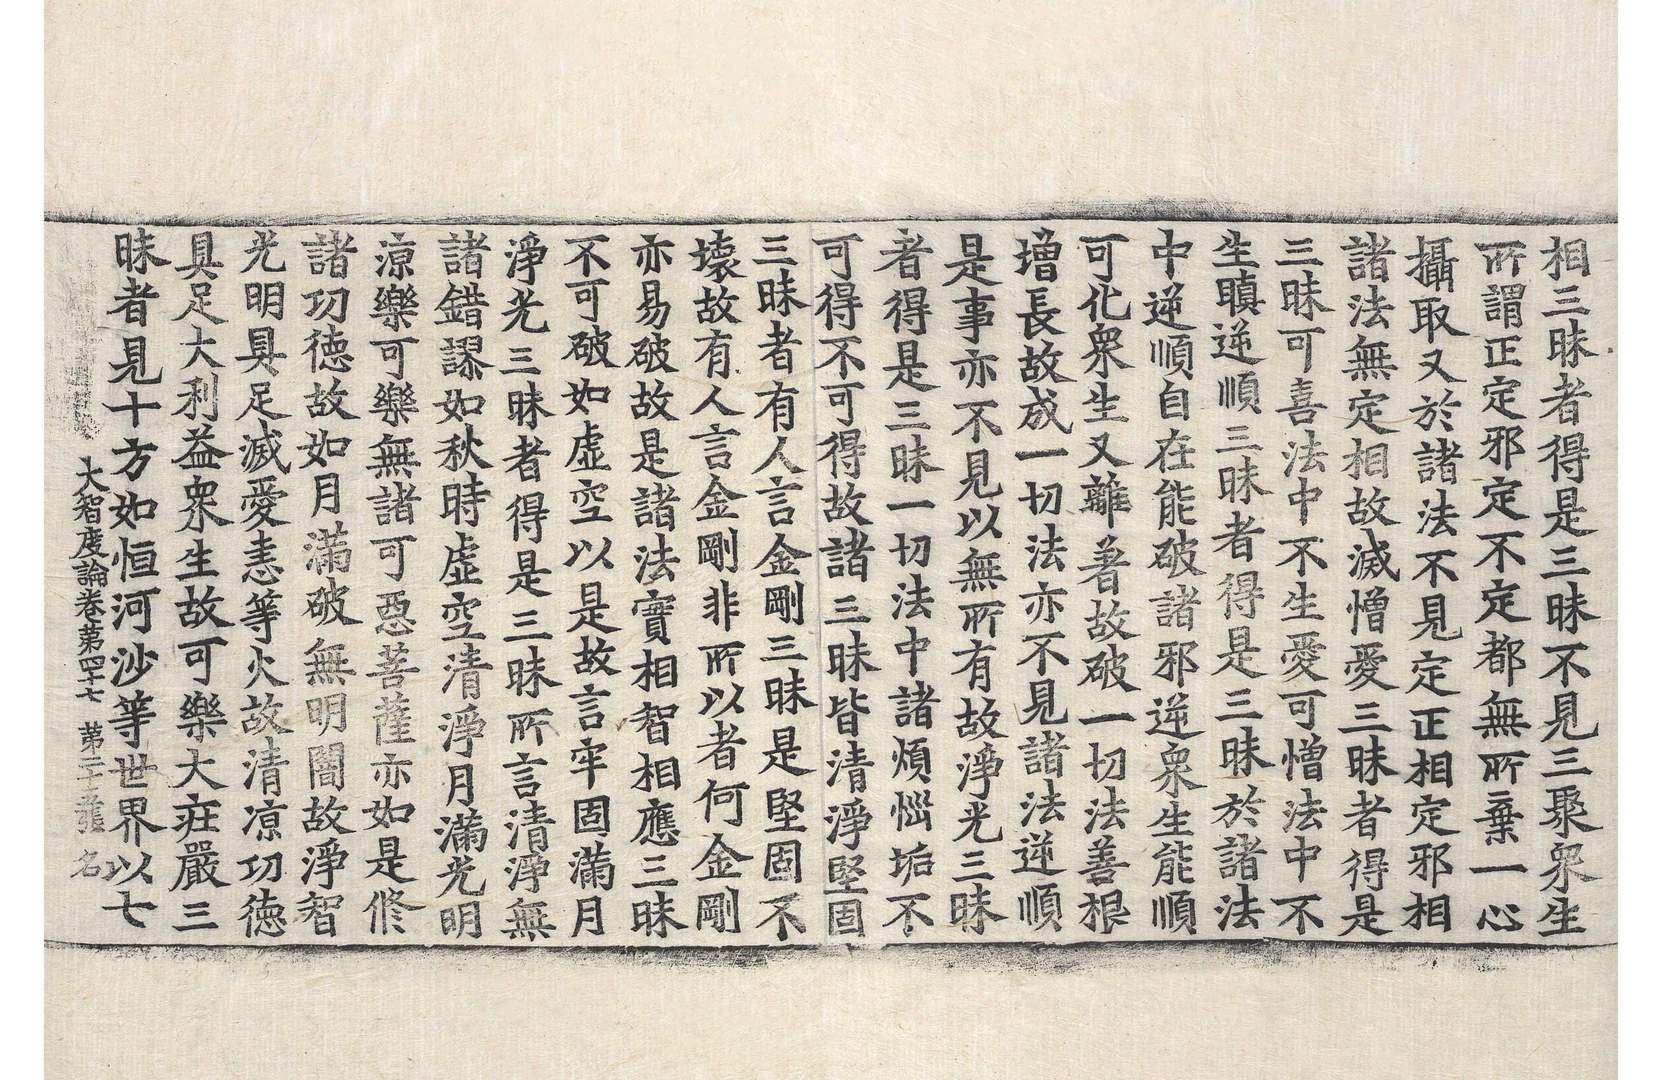 相三昧者得是三昧不見三聚衆生
所謂正定邪定不定都無所棄一心
攝取又於諸法不見定正相定邪相
諸法無定相故滅憎愛三昧者得是
三昧可喜法中不生愛可憎法中不
生瞋逆順三昧者得是三昧於諸法
中逆順自在能破諸邪逆衆生能順
可化衆生又離著故破一切法善根
增長故成一切法亦不見諸法逆順
是事亦不見以無所有故淨光三昧
者得是三昧一切法中諸煩惱垢不
可得不可得故諸三昧皆清淨堅固
三昧者有人言金剛三昧是堅固不
壞故有人言金剛非所以者何金剛
亦易破故是諸法實相智相應三昧
不可破如虛空以是故言牢固滿月
淨光三昧者得是三昧所言清淨無
諸錯謬如秋時虛空清淨月滿光明
涼樂可樂無諸可惡菩薩亦如是修
諸功德故如月滿破無明闇故淨智
光明具足滅愛恚等火故清涼功德
具足大利益衆生故可樂大莊嚴三
昧者見十方如恒河沙等世界以七
大智度論卷第四十七 第二十張 名